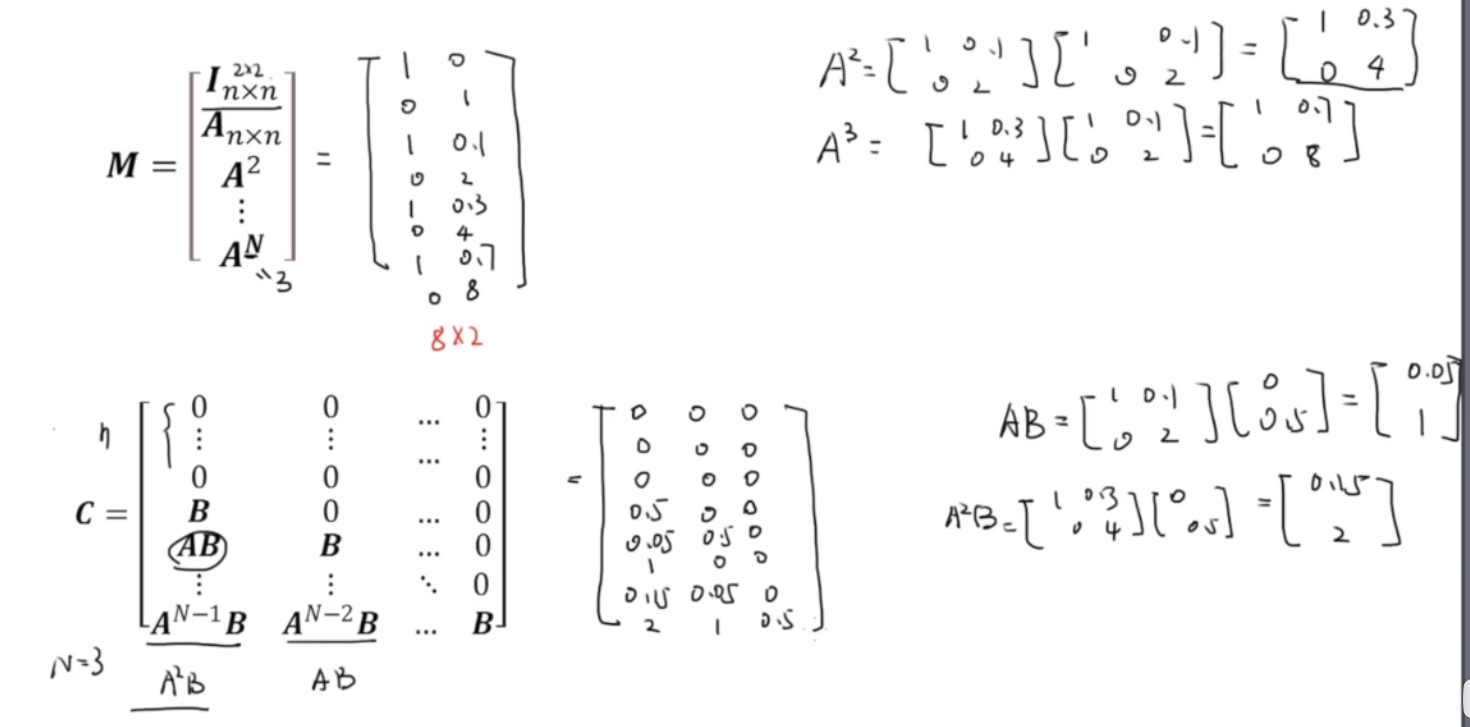 M = [ I_{n×n} 2×2 / A_{n×n} / A² / ⋮ / A^N ] =
"3
1 0
0 1
1 0.1
0 2
1 0.3
0 4
1 0.7
0 8
8×2
A² = [ 1 0.1 / 0 2 ] [ 1 0.1 / 0 2 ] = [ 1 0.3 / 0 4 ]
A³ = [ 1 0.3 / 0 4 ] [ 1 0.1 / 0 2 ] = [ 1 0.7 / 0 8 ]
n
C =
0 0 ... 0
⋮ ⋮ ... ⋮
0 0 0
B 0 ... 0
AB B ... 0
⋮ ⋮ ⋱ 0
A^{N−1}B A^{N−2}B ... B
=
0 0 0
0 0 0
0 0 0
0.5 0 0
0.05 0.5 0
1 0 0
0.15 0.05 0
2 1 0.5
N=3
A²B AB
AB = [ 1 0.1 / 0 2 ] [ 0 / 0.5 ] = [ 0.05 / 1 ]
A²B = [ 1 0.3 / 0 4 ] [ 0 / 0.5 ] = [ 0.15 / 2 ]